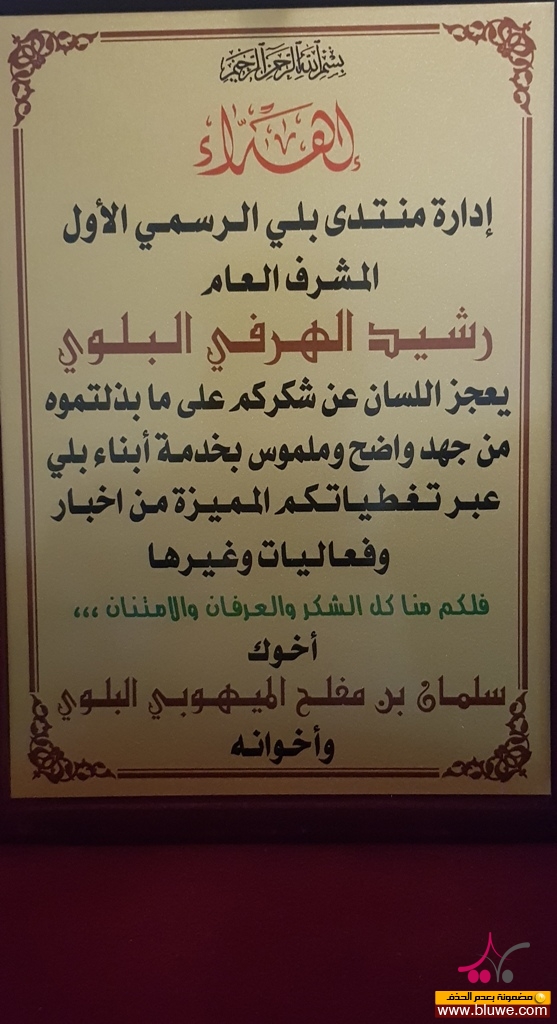 بسم الله الرحمن الرحيم
إهداء
إدارة منتدى بلي الرسمي الأول
المشرف العام
رشيد الهرفي البلوي
يعجز اللسان عن شكركم على ما بذلتموه
من جهد واضح وملموس بخدمة أبناء بلي
عبر تغطياتكم المميزة من اخبار
وفعاليات وغيرها
فلكم منا كل الشكر والعرفان والامتنان ,,,
أخوك
سلمان بن مفلح الميهوبي البلوي
وأخوانه
مضمونة بعدم الحذف
www.bluwe.com